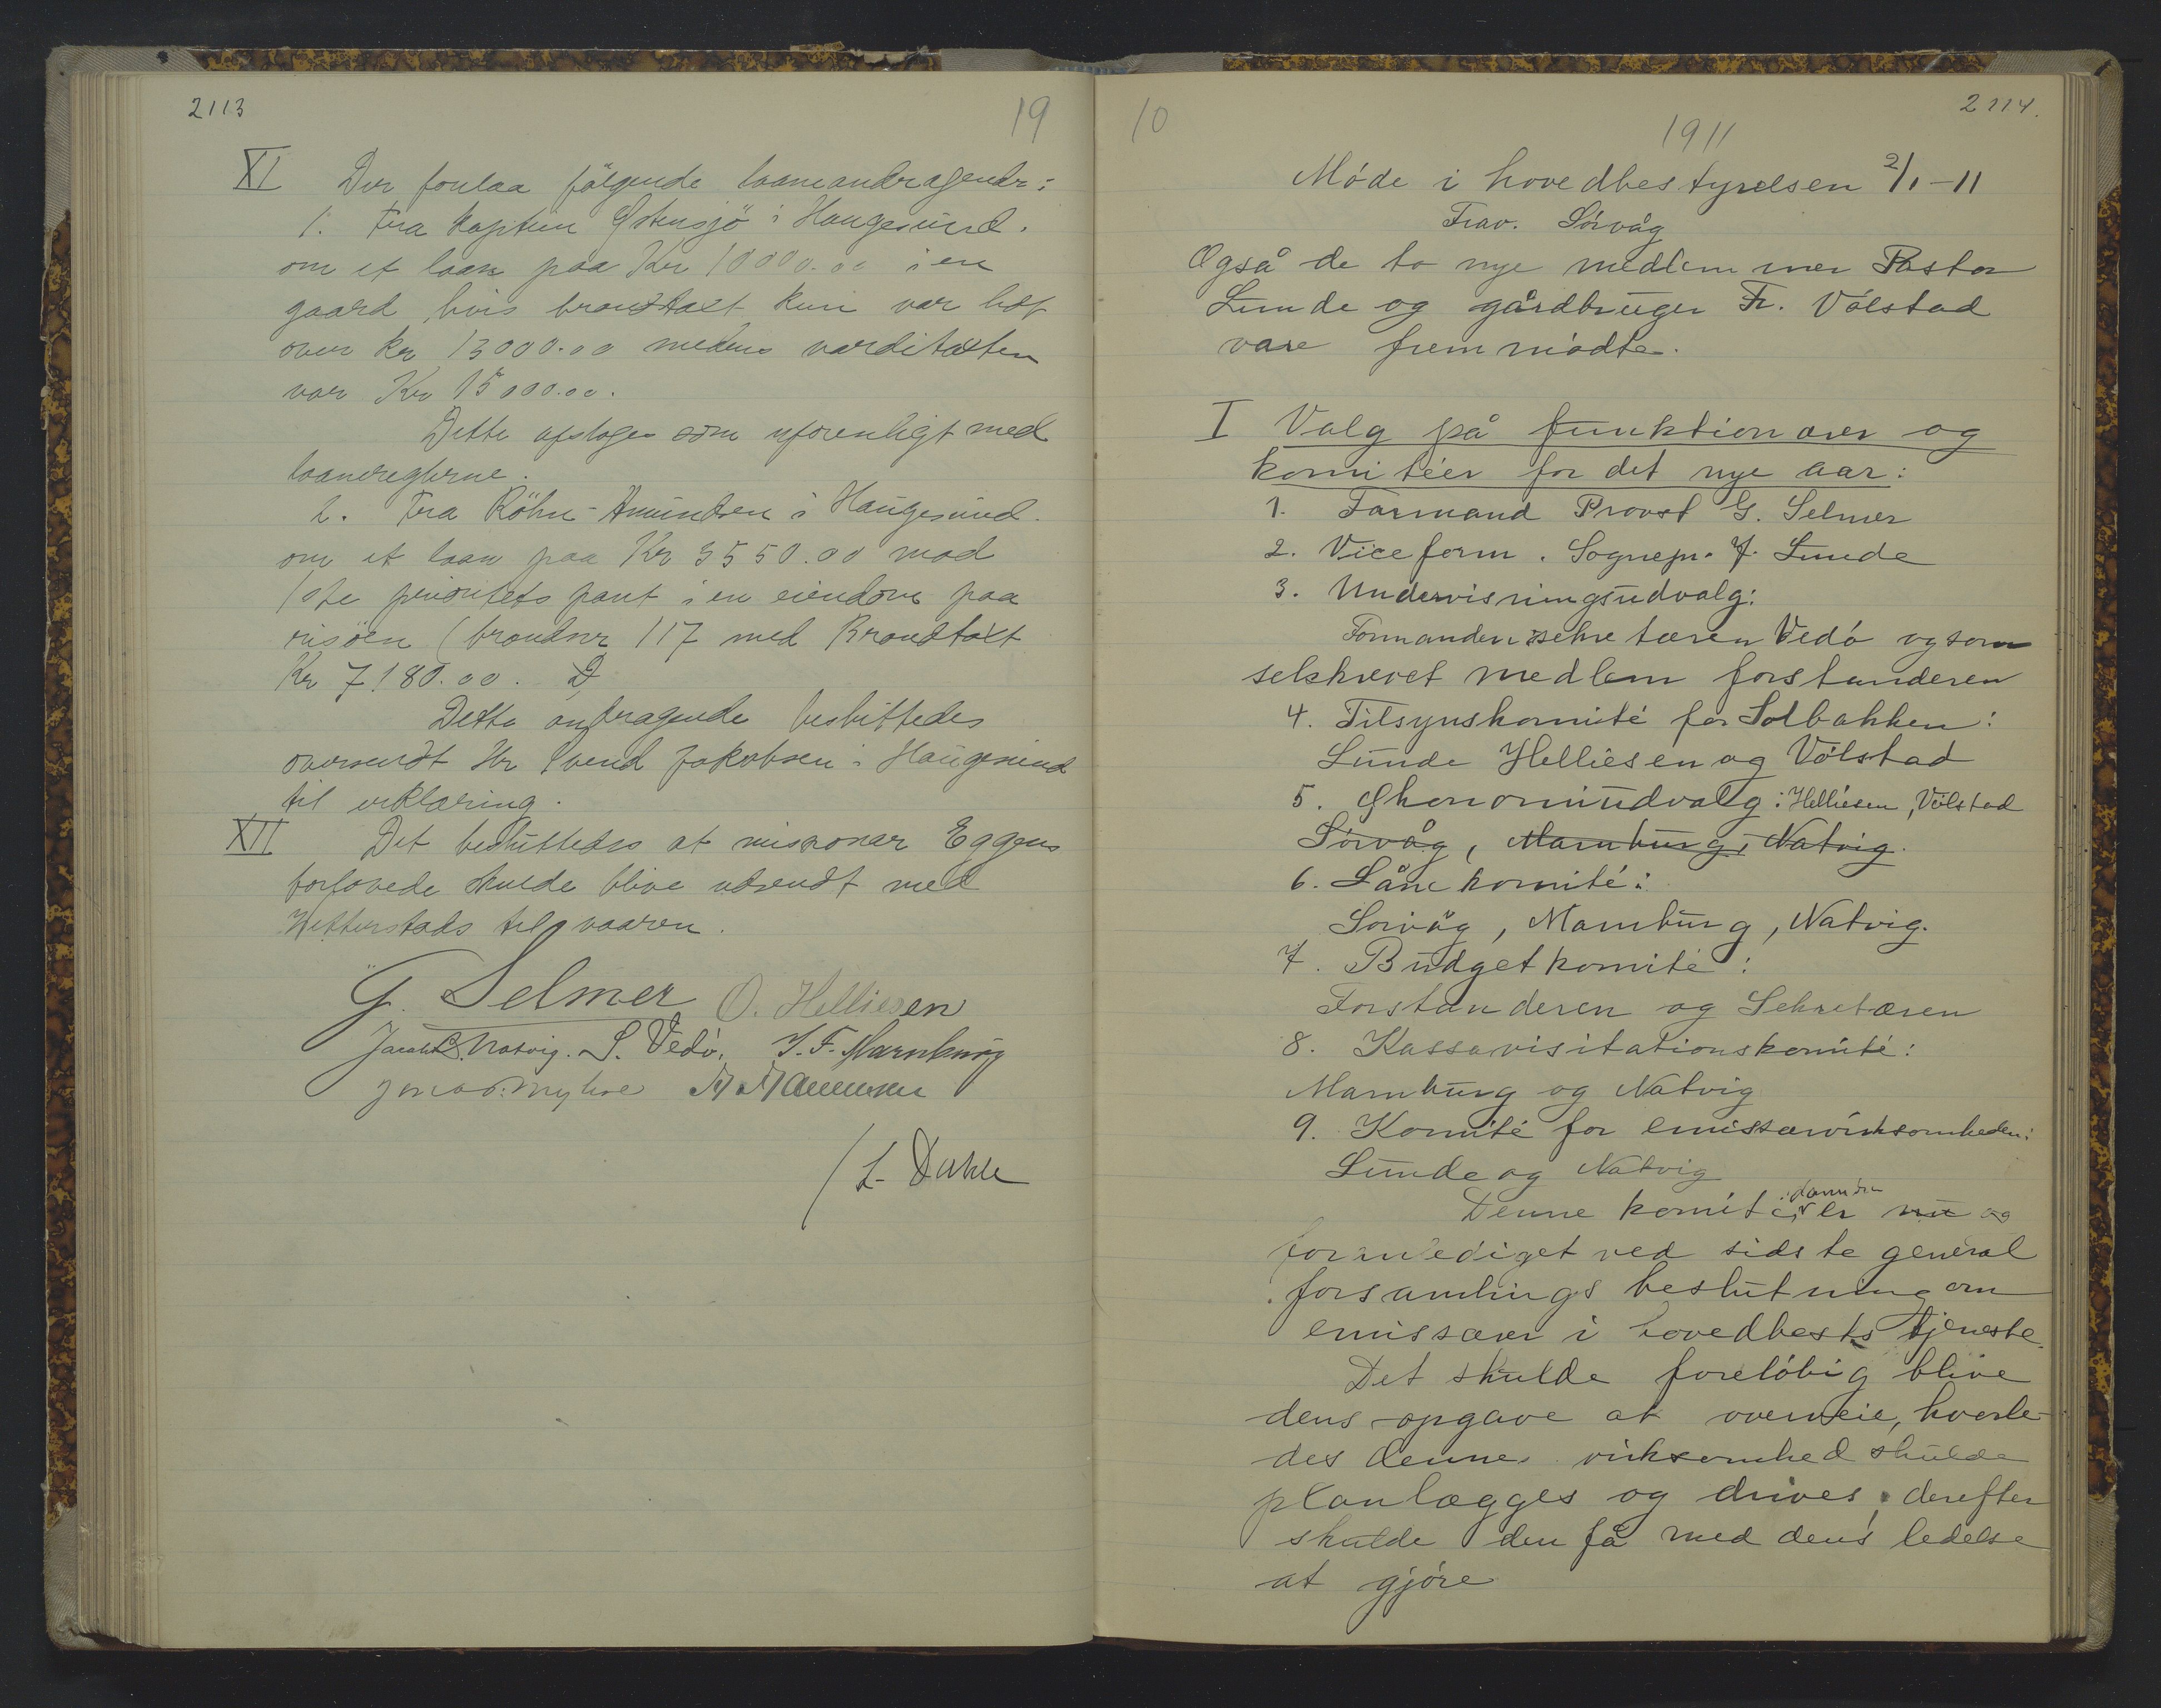 2113
19
XI Der forelaa fölgende laaneandragender:
1. Fra kaptein Östensjö i Haugesund.
om et laan paa Kr 10000.00 i en
gaard hvis brandtaxt kun var lidt
over kr 13000.00 medens varditaxten
var Kr 15000.00.
Dette afsloges som uforenligt med
laanereglerne.
2. Fra Röhn-Amundsen i Haugesund.
om et laan paa Kr 3550.00 mod
1ste prioritets pant i en eiendom paa
risöen (brandnr 117 med Brandtaxt
Kr 7180.00. D
Dette andragende besluttedes
oversendt Hr Svend Jakobsen i Haugesund
til erklæring.
XII Det besluttedes at missionær Eggens
forlovede skulde blive udsendt med
Wetterstads til vaaren.
G. Selmer O. Helliesen
Jacob Natvig. S. Vedö. J. F. Marnburg
Jonas. Myhre
/ L. Dahle
10
2114.
1911
Móde i hovedbestyrelsen 2/1-11
Frav. Sörvåg
Også de to nye medlemmer Pastor
Lunde og gårdbruger Fr. Völstad
vare fremmödte.
I Valg på funktionærer og
komitéer for det nye aar:
1. Formand Provst G. Selmer
2. Viceform. Sognepr. J. Lunde
3. Undervisningsudvalg:
Formanden sekretæren Vedö og som
selskrevet medlem forstanderen
4. Tilsynskomité for Solbakken:
Lunde Helliesen og Völstad
5. Økonomiudvalg: Helliesen, Völstad
Sörvåg, Marnburg, Natvig.
6. Lånekomité:
Sörvåg, Marnburg, Natvig.
7. Budgetkomité:
Forstanderen og Sekretæren
8. Kassavisitationskomité:
Marnburg og Natvig
9. Komité for emissærvirksomheden:
Lunde og Natvig
Denne komité er nu og
foranlediget ved sidste general
forsamlings beslutning om
emissærer i hovedbests tjeneste.
Det skulde foreløbig blive
dens opgave at overveie, hvorle-
des denne virksomhed skulde
planlægges og drives, derefter
skulde den få med dens ledelse
at gjöre